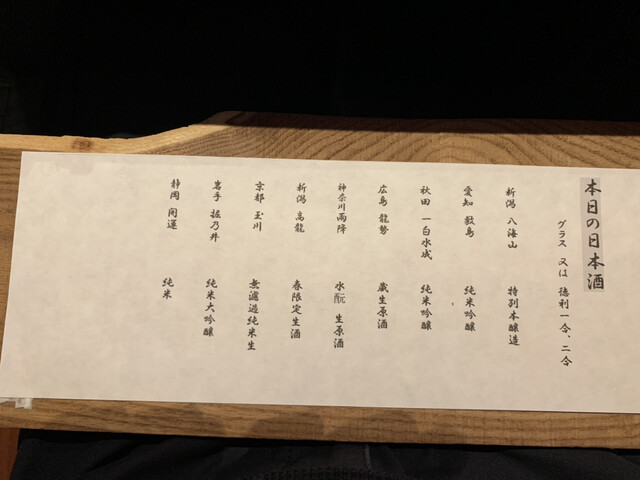 本日の日本酒
グラス 又は 徳利一合、二合
新潟 八海山 特別本醸造
愛知 敷島 純米吟醸
秋田 一白水成 純米吟醸
広島 龍勢 蔵生原酒
神奈川 雨降 水酛 生原酒
新潟 高龍 春限定生酒
京都 玉川 無濾過純米生
岩手 堀乃井 純米大吟醸
静岡 開運 純米